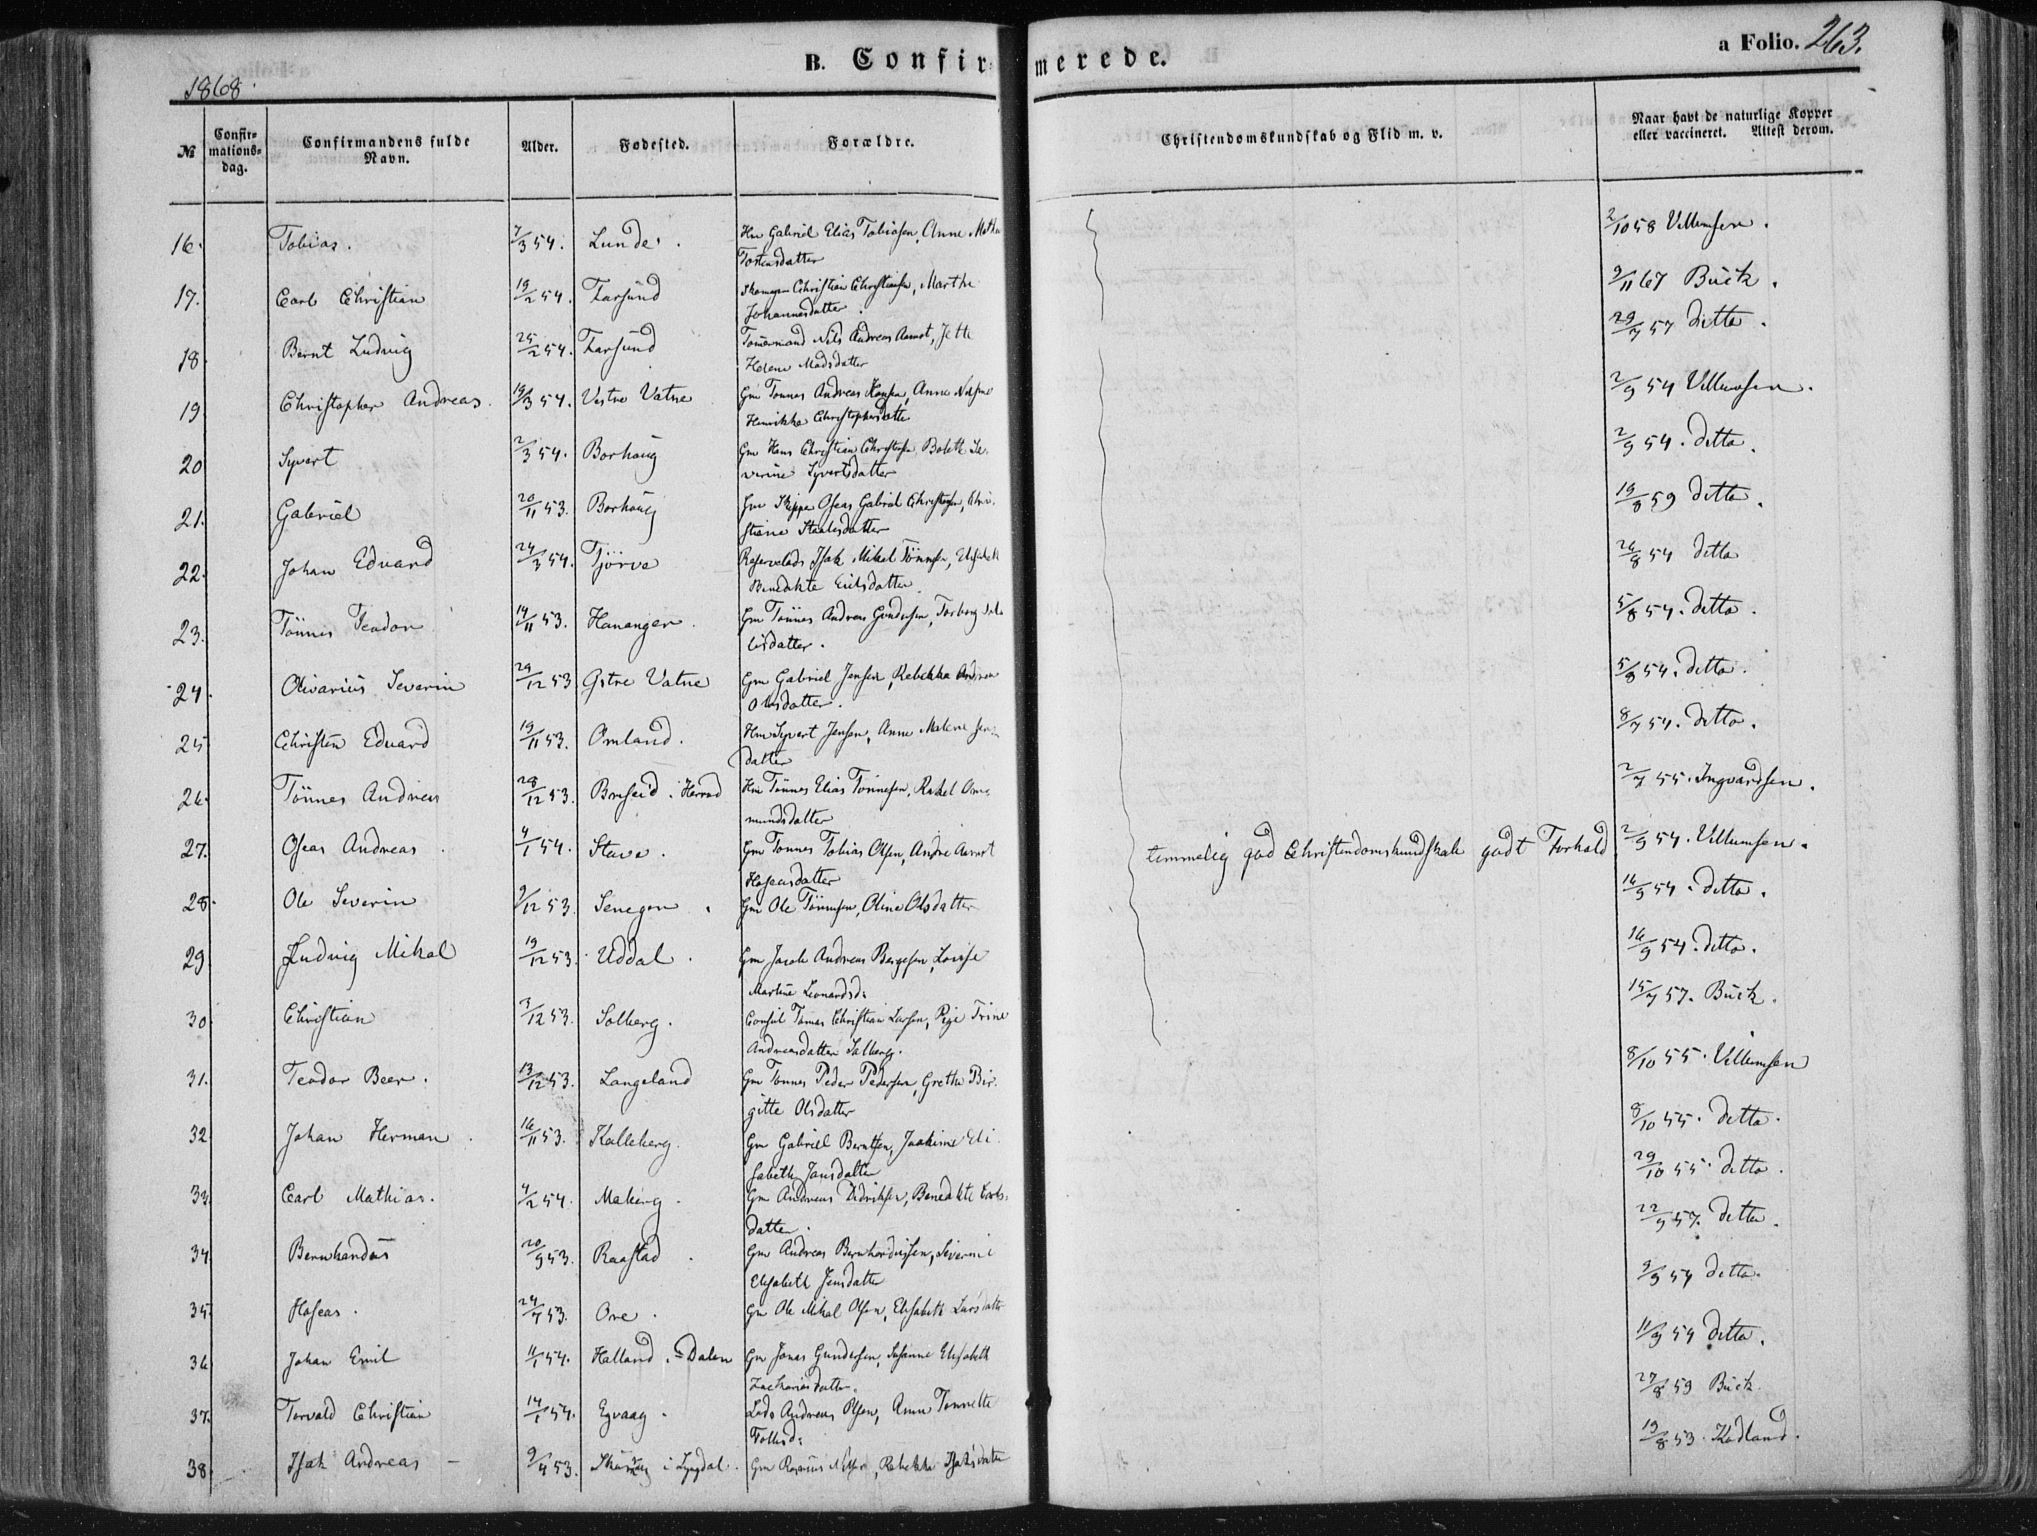 B. Confirmerede.
a Folio. 263.
1868.
№
Confirmationsdag.
Confirmandens fulde Navn.
Alder.
Fødested.
Forældre.
Christendomskundskab og Flid m. v.
Naar havt de naturlige Kopper eller vaccineret. Attest derom.
16. Tobias. 7/3 54. Lunde. Hm Gabriel Elias Tobiasen, Anne
Tostensdatter 2/10 58 Villumsen.
17. Carl Christian 19/2 54. Farsund Christian Christiansen, Marthe
Johannesdatter. 9/11 67 Buck.
18. Bernt Ludvig 25/2 54. Farsund Tømermand Nils Andreas Aanot, Jette
Helene Madsdatter 29/7 57 ditto.
19 Christopher Andreas. 19/3 54. Vestre Vatne Gm Tønnes Andreas Hansen, Anne
Henrikke Christophersdatter 2/9 54 Villumsen.
20 Syvert 2/3 54. Borhaug Gm Hans Christian Christensen, Bolette Se-
verine Syvertsdatter 2/9 54. ditto.
21. Gabriel 20/11 53. Borhaug Gm Skipper Oseas Gabriel Christensen, Chri-
stiane Staalesdatter 19/8 59 ditto.
22. Johan Edvard 24/3 54. Tjörve Isak Mikal Tönnesen, Elisabeth
Benedikte Eilertsdatter 26/8 54 ditto
23. Tönnes Teodor 14/11 53. Hananger. Gm Tönnes Andreas Gundersen, Torborg
5/8 54. ditto.
24. Olivarius Severin 29/12 53 Östre Vatne Gm Gabriel Jensen, Rebekka Andrea
Olsdatter. 5/8 54. ditto.
25 Christen Edvard 19/11 53. Omland. Hm Syvert Jensen, Anne Malene Jens-
datter 8/7 54. ditto.
26. Tönnes Andreas 28/12 53. Briseid i Herred Hm Tönnes Elias Tönnesen, Rakel Om-
mundsdatter 2/7 55. Ingvardsen.
27. Oseas Andreas. 4/1 54. Stave. Gm Tönnes Tobias Olsen,
Hoseasdatter temmelig god Christendomskundskab godt Forhold 2/9 54. Villumsen.
28. Ole Severin 9/12 53. Gm Ole Tönnesen, Oline Olsdatter 16/9 54. ditto.
29 Ludvig Mikal 19/12 53. Uddal. Gm Jacob Andreas Bergesen, Lovise
Martine Leonardsd: 16/9 54. ditto.
30. Christian 3/12 53. Solberg. Consul Tönnes Christian Larsen, Pige Trine
Andreasdatter Solberg. 15/7 57. Buck.
31. Teodor Beer. 13/12 53. Langeland Gm Tönnes Peder Pedersen, Grethe Bir-
gitte Olsdatter 8/10 55. Villumsen
32. Johan Herman. 16/11 53. Kalleberg. Gm Gabriel Berntsen, Joakime Eli-
sabeth Jansdatter 8/10 55. ditto.
33. Carl Mathias. 4/2 54. Meberg. Gm Andreas Didriksen, Benedikte
datter. 29/10 55. ditto.
34. Bernhardus 20/9 53. Raastad. Gm Andreas Bernhardussen, Severine
Elisabeth Jensdatter 22/9 57. ditto.
35. Hoseas. 24/7 53. Ore. Gm Ole Mikal Olsen, Elisabeth Larsdatter 9/9 54 ditto.
36. Johan Emil 11/1 54. Halland i Dalen Gm Jonas Gundersen, Susanne Elisabeth
Zachariasdatter. 11/9 54 ditto.
37. Torvald Christian 14/1 54. Egvaag. Lods Andreas Olsen, Anne Tonnette
27/8 59 Buck.
38. Isak Andreas 9/4 53. i Lyngdal. Gm Rasmus, Rebekka Isaksdatter 19/8 53. Kådland.